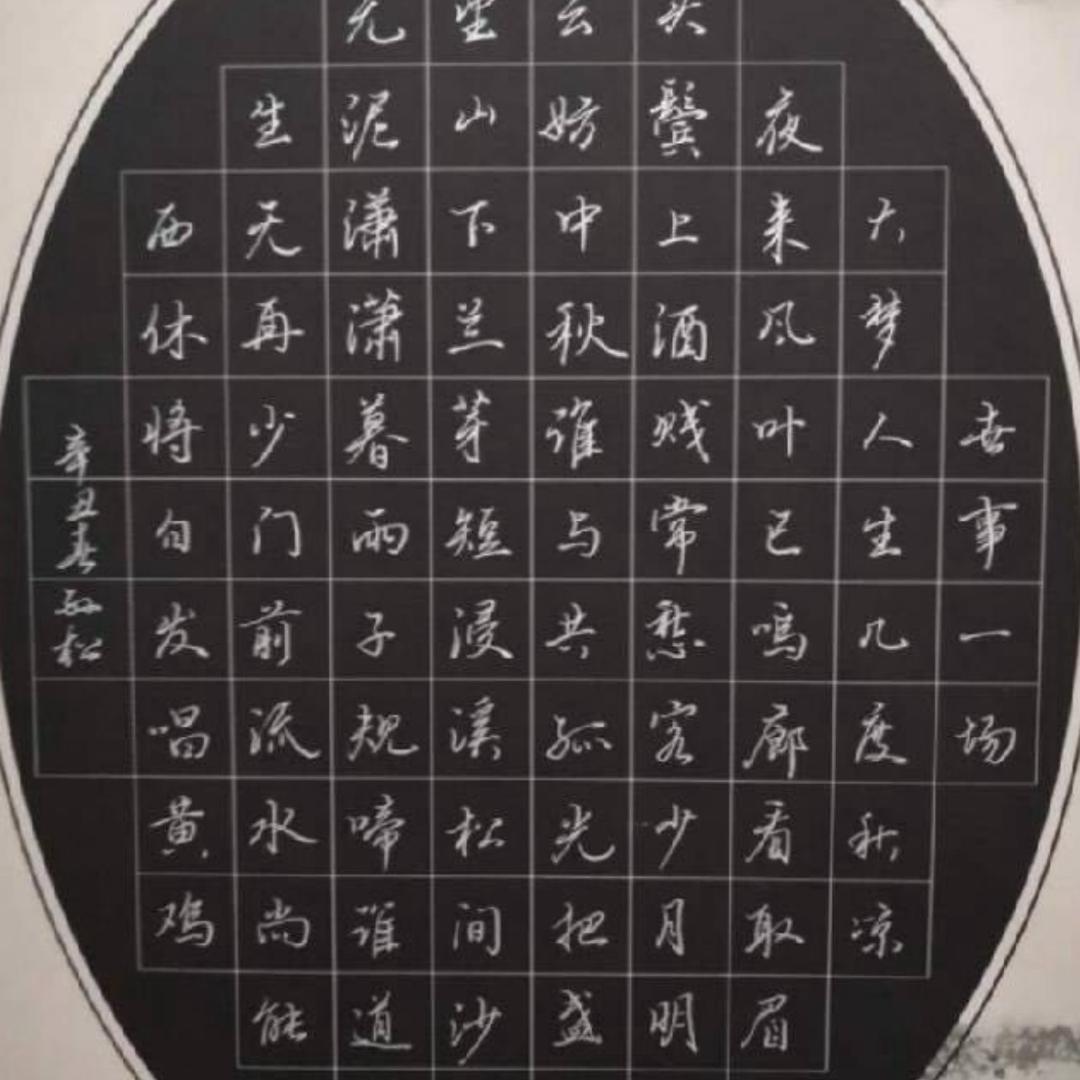 世事一场
大梦人生几度秋凉
夜来风叶已鸣廊看取眉
头鬓上酒贱常愁客少月明
云妨中秋谁与共孤光把盏
望山下兰芽短浸溪松间沙
无泥潇潇暮雨子规啼谁道
生无再少门前流水尚能
西休将白发唱黄鸡
辛丑春 松